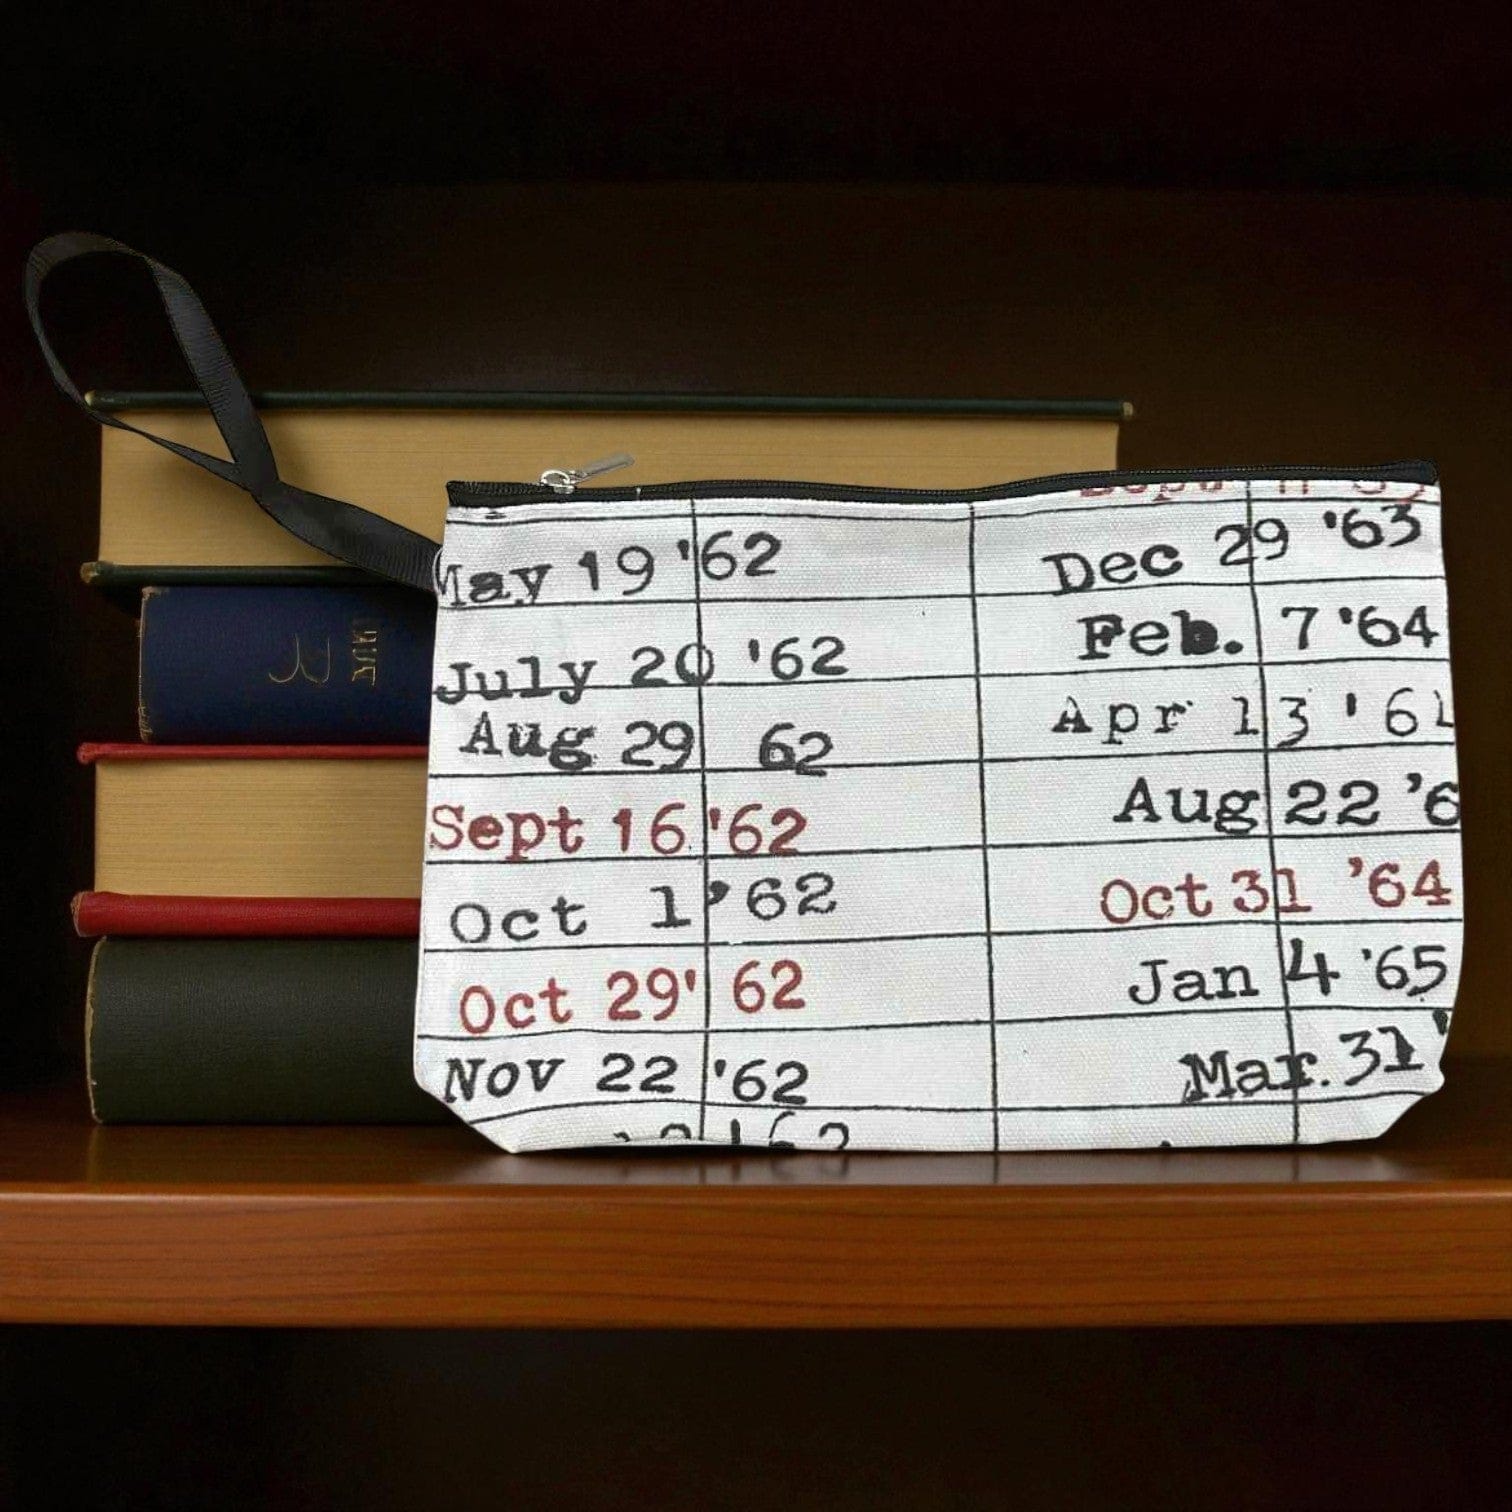 May 19 '62
July 20 '62
Aug 29 62
Sept 16 '62
Oct 1 '62
Oct 29' 62
Nov 22 '62
Dec 29 '63
Feb. 7 '64
Apr 13 '6
Aug 22 '6
Oct 31 '64
Jan 4 '65
Mar. 31'